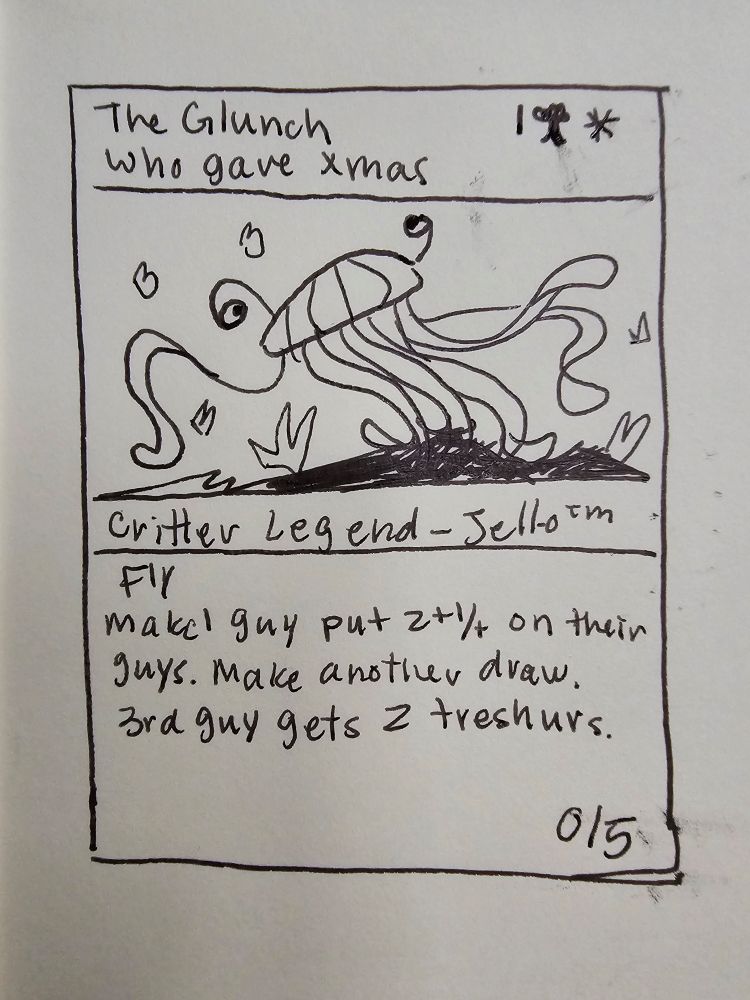 The Glunch 1
who gave xmas
Critter Legend - Jello™
Fly
make 1 guy put 2 +1/+ on their
guys. Make another draw.
3rd guy gets 2 treshurs.
0/5